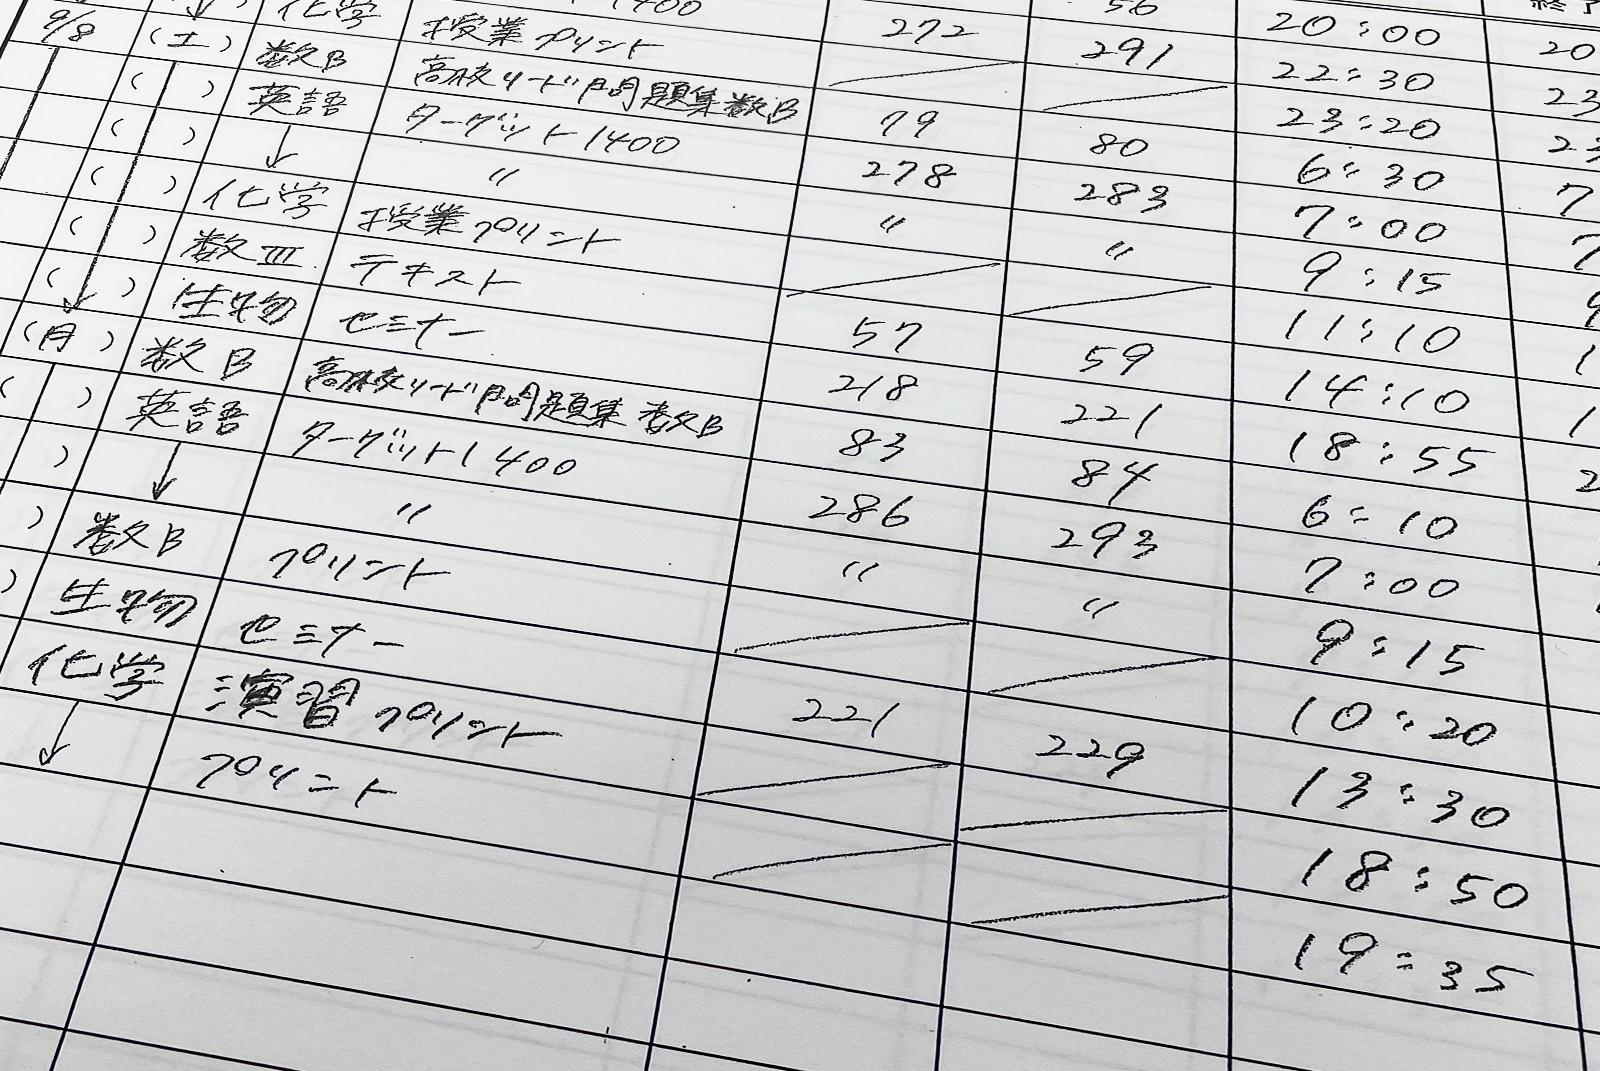 56 20:00
1400 272 291 22:30
↓ 化学 授業プリント 23:20
9/8 (土) 数B 高校リード問題集数B 79 80 6:30
( ) 英語 ターゲット1400 278 283 7:00
( ) ↓ 〃 〃 〃 9:15
( ) 化学 授業プリント 11:10
( ) 数III テキスト 57 59 14:10
( ) 生物 セミナー 218 221 18:55
(月) 数B 高校リード問題集数B 83 84 6:10
( ) 英語 ターゲット1400 286 293 7:00
) ↓ 〃 〃 〃 9:15
) 数B プリント 10:20
) 生物 セミナー 221 229 13:30
化学 演習プリント 18:50
↓ プリント 19:35